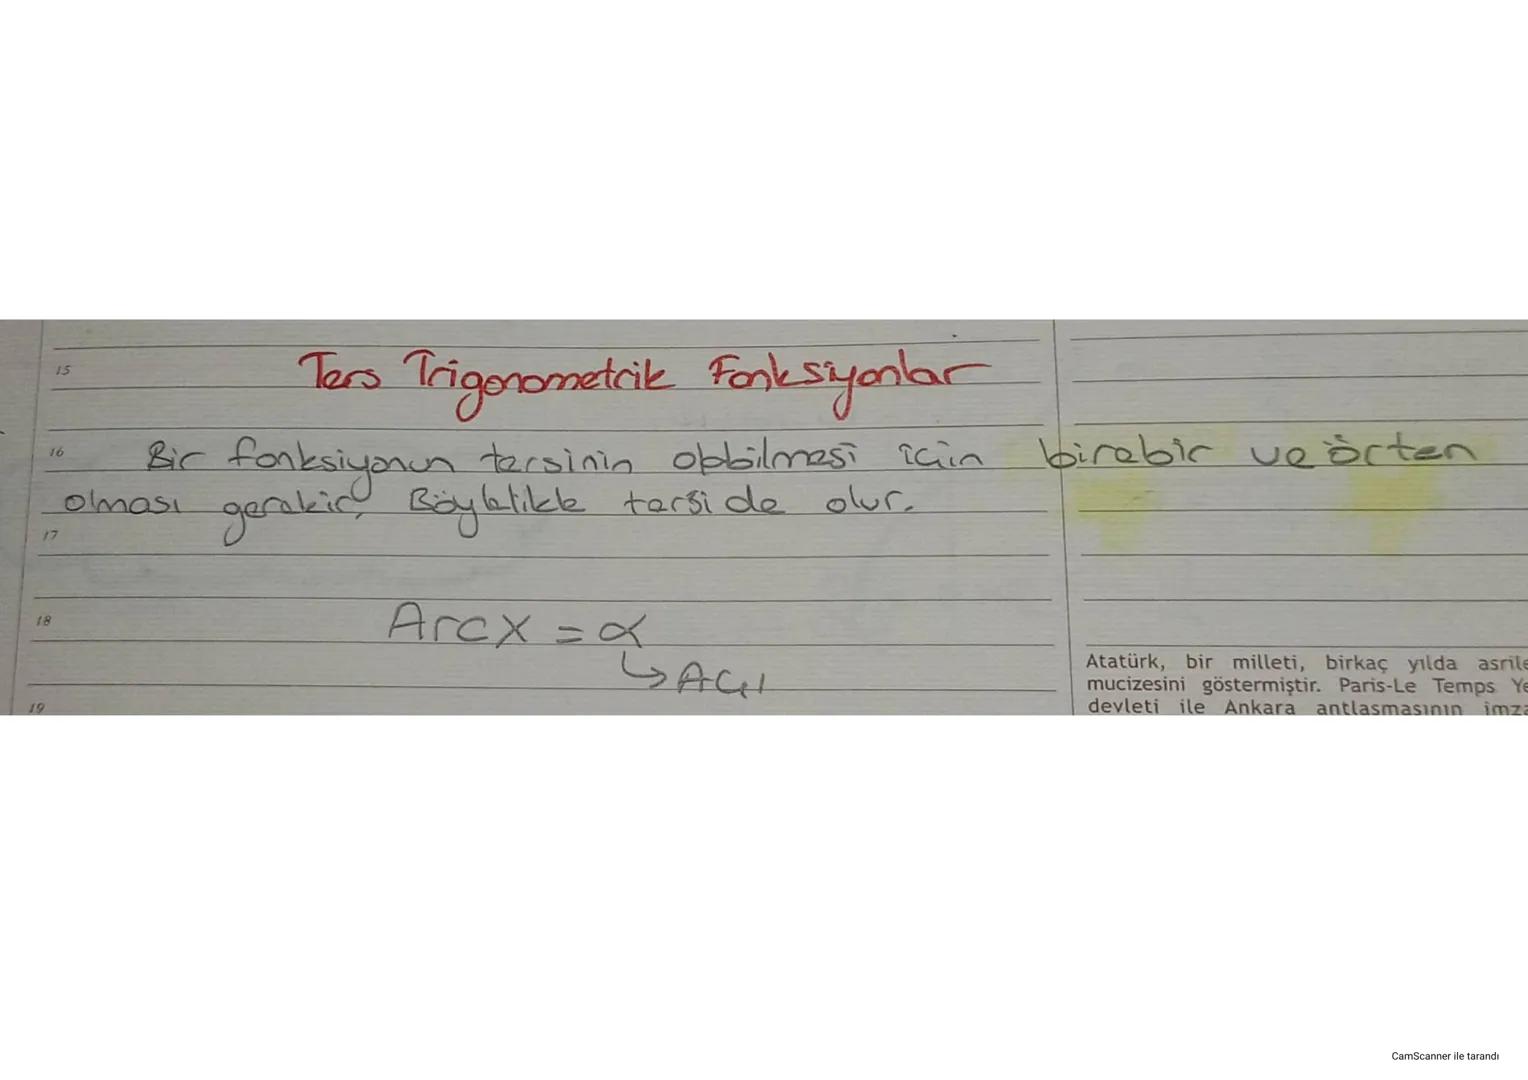 15
Ters Trigonometrik Fonksiyonlar
16
Bir fonksiyonun tersinin olabilmesi için birebir ve örten
olması gerekir. Böylelikle tersi de olur.
17
18
Arcx = α
↳ Açı
19
Atatürk, bir milleti, birkaç yılda asrile
mucizesini göstermiştir. Paris-Le Temps Ye
devleti ile Ankara antlaşmasının imza
CamScanner ile tarandı